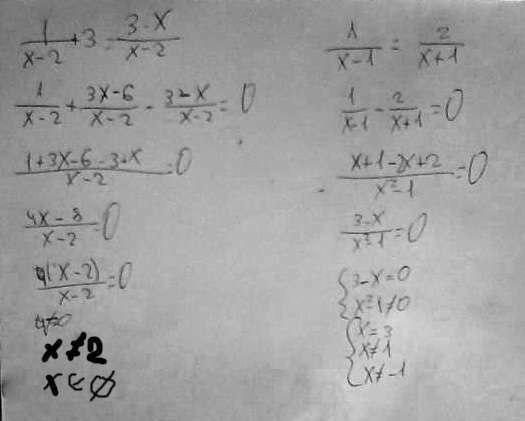 1/(x-2) + 3 = (3-x)/(x-2)
1/(x-2) + (3x-6)/(x-2) - (3-x)/(x-2) = 0
(1+3x-6-3+x)/(x-2) = 0
(4x-8)/(x-2) = 0
4(x-2)/(x-2) = 0
4≠0
x≠2
x∈∅
1/(x-1) = 2/(x+1)
1/(x-1) - 2/(x+1) = 0
(x+1-2x+2)/(x²-1) = 0
(3-x)/(x²-1) = 0
{3-x=0
x²-1≠0
{x=3
x≠1
x≠-1